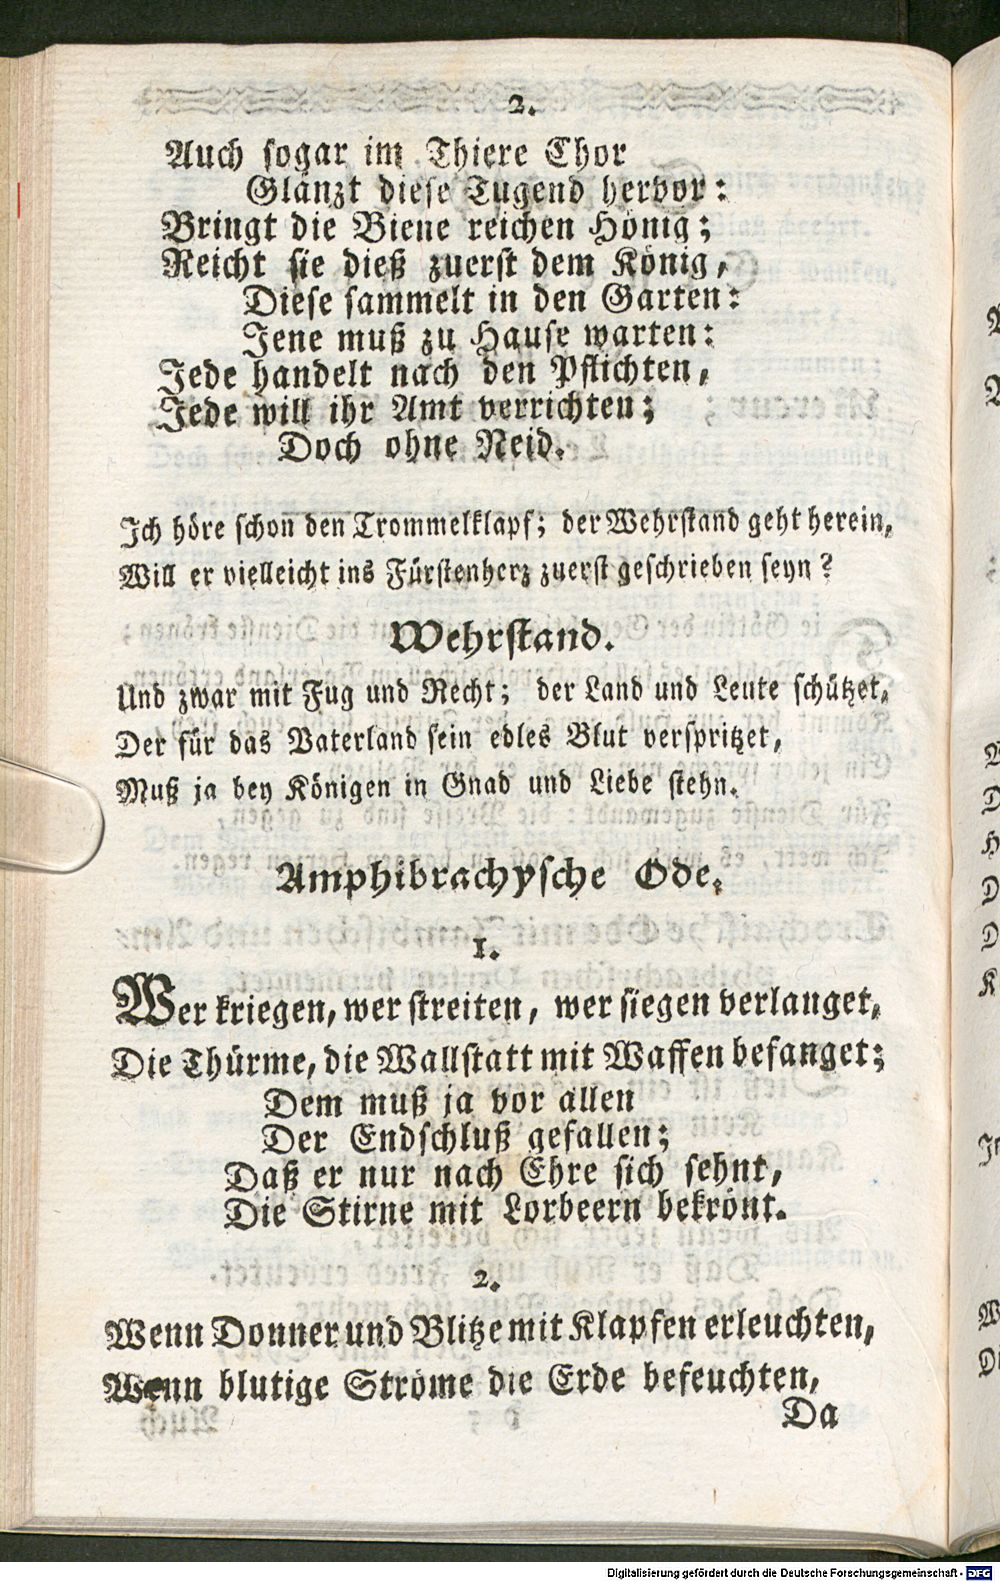 2.
Auch sogar im Thiere Chor
Glänzt diese Tugend hervor:
Bringt die Biene reichen Hönig;
Reicht sie dieß zuerst dem König,
Diese sammelt in den Garten:
Jene muß zu Hause warten:
Jede handelt nach den Pflichten,
Jede will ihr Amt verrichten;
Doch ohne Neid.
Ich höre schon den Trommelklapf; der Wehrstand geht herein,
Will er vielleicht ins Fürstenherz zuerst geschrieben seyn?
Wehrstand.
Und zwar mit Fug und Recht; der Land und Leute schützet,
Der für das Vaterland sein edles Blut verspritzet,
Muß ja bey Königen in Gnad und Liebe stehn.
Amphibrachysche Ode.
1.
Wer kriegen, wer streiten, wer siegen verlanget,
Die Thürme, die Wallstatt mit Waffen befanget;
Dem muß ja vor allen
Der Endschluß gefallen;
Daß er nur nach Ehre sich sehnt,
Die Stirne mit Lorbeern bekrönt.
2.
Wenn Donner und Blitze mit Klapfen erleuchten,
Wenn blutige Ströme die Erde befeuchten,
Da
Digitalisierung gefördert durch die Deutsche Forschungsgemeinschaft - DFG